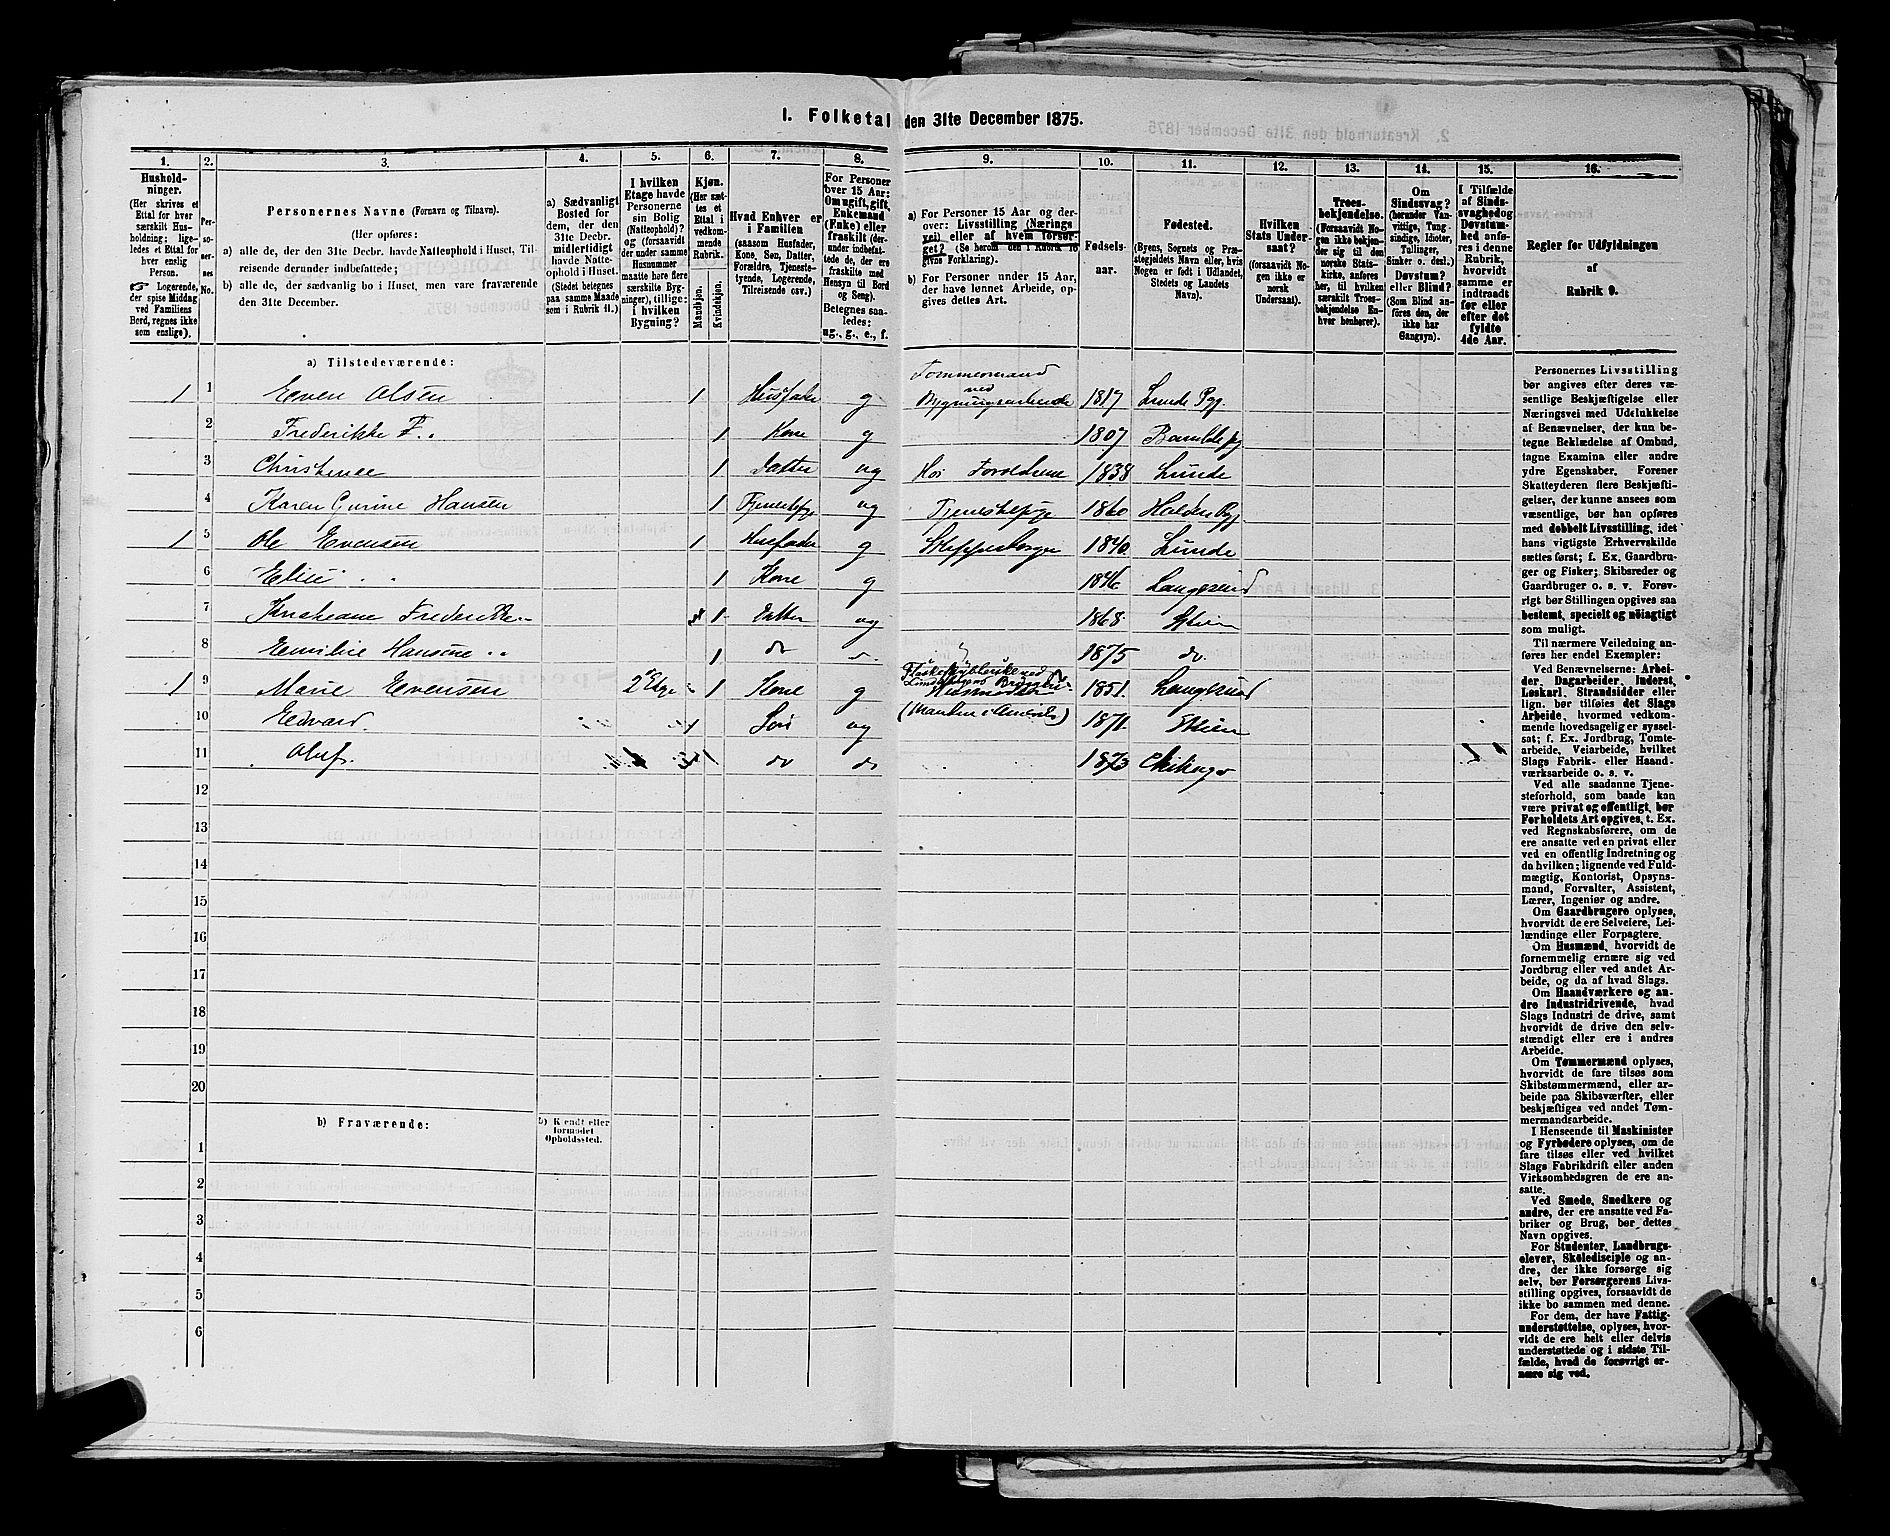 I. Folketal den 31te December 1875.
1.
2.
3.
4.
5.
6.
7.
8.
9.
10.
11.
12.
13.
14.
15.
16.
Husholdninger.
(Her skrives et Ettal for hver særskilt Husholdning; ligeledes et Ettal for hver enslig Person.
☞ Logerende, der spise Middag ved Familiens Bord, regnes ikke som enslige).
Personernes No.
Personernes Navne (Fornavn og Tilnavn).
(Her opføres:
a) alle de, der den 31te Decbr. havde Natteophold i Huset, Tilreisende derunder indbefattede;
b) alle de, der sædvanlig bo i Huset, men vare fraværende den 31te December.
a) Sædvanligt Bosted for dem, der den 31te Decbr. midlertidigt havde Natteophold i Huset. (Stedet betegnes paa samme Maade som i Rubrik 11.)
I hvilken Etage havde Personerne sin Bolig (Natteophold)? og (forsaavidt der under samme Husnummer maatte høre flere særskilte Bygninger), tillige: i hvilken Bygning?
Kjøn. (Her sættes et Ettal i vedkommende Rubrik.
Mandkjøn.
Kvindekjøn.
Hvad Enhver er i Familien (saasom Husfader, Kone, Søn, Datter, Forældre, Tjenestetyende, Logerende, Tilreisende osv.)
For Personer over 15 Aar: Om ugift, gift, Enkemand (Enke) eller fraskilt (derunder indbefattede de, der ere fraskilte med Hensyn til Bord og Seng). Betegnes saaledes: ug., g., e., f.
a) For Personer 15 Aar og derover: Livsstilling (Næringsvei) eller af hvem forsørget? (Se herom den i Rubrik 16 givne Forklaring).
b) For Personer under 15 Aar, der have lønnet Arbeide, opgives dettes Art.
Fødselsaar.
Fødested.
(Byens, Sognets og Præstegjeldets Navn eller, hvis Nogen er født i Udlandet, Stedets og Landets Navn).
Hvilken Stats Undersaat? (forsaavidt Nogen ikke er norsk Undersaat).
Troesbekjendelse. (Forsaavidt Nogen ikke bekjender sig til den norske Statskirke, anføres her, til hvilken særskilt Troesbekjendelse Enhver henhører).
Om Sindssvag? (herunder Vanvittige, Tungsindige, Idioter, Tullinger, Sinker o. desl.) Døvstum? eller Blind? (Som Blind anføres den, der ikke har Gangsyn).
I Tilfælde af Sindssvaghed og Døvstumhed anføres i denne Rubrik, hvorvidt samme er indtraadt før eller efter det fyldte 4de Aar.
Regler for Udfyldningen af Rubrik 9.
a) Tilstedeværende:
1 1 Even Olsen 1 Husfader g Tømmermand ved Bygningsarbeide 1817 Lunde Pgj.
2 Frederikke F. 1 Kone g 1807 Bamble pgj
3 Christence 1 Datter ug Hos Foreldrene 1838 Lunde
4 Karen Gurine Hansen 1 Tjenestepge ug Tjenestepige 1860 Holden Pgj
1 5 Ole Evensen 1 Husfader g 1840 Lunde
6 Elise 1 Kone g 1846 Langesund
7 Frederikke 1 Datter ug 1868 Skien
8 Emilie Hansine 1 do d. 1875 do.
1 9 Marie Evensen 2 Etage 1 Kone g 1851. Langesund
10 Edvard. 1 Søn ug (Manden i Amerika) 1871. Skien
11 Oluf. 1 do do 1873 Chikago
12
13
14
15
16
17
18
19
20
b) Fraværende:
b) Kjendt eller formodet Opholdssted.
1
2
3
4
5
6
Personernes Livsstilling
bør angives efter deres væ-
sentlige Beskjæftigelse eller
Næringsvei med Udelukkelse
af Benævnelser, der kun be-
tegne Beklædelse af Ombud,
tagne Examina eller andre
ydre Egenskaber. Forener
Skatteyderen flere Beskjæfti-
gelser, der kunne ansees som
væsentlige, bør han opføres
med dobbelt Livsstilling, idet
hans vigtigste Erhvervskilde
sættes først; f. Ex. Gaardbru-
ger og Fisker; Skibsreder og
Gaardbruger o. s. v. Forøv-
rigt bør Stillingen opgives saa
bestemt, specielt og nøiagtigt
som muligt.
Til nærmere Veiledning an-
føres her endel Exempler:
Ved Benævnelserne: Arbei-
der, Dagarbeider, Inderst,
Løskarl, Strandsidder eller
lign. bør tilføies det Slags
Arbeide, hvormed vedkom-
mende hovedsagelig er syssel-
sat; f. Ex. Jordbrug, Tomte-
arbeide, Veiarbeide, hvilket
Slags Fabrik- eller Haand-
værksarbeide o. s. v.
Ved alle saadanne Tjene-
steforhold, som baade kan
være privat og offentligt, bør
Forholdets Art opgives, t. Ex.
ved Regnskabsførere, om de
ere ansatte ved en privat eller
ved en offentlig Indretning og
da hvilken; lignende ved Fuld-
mægtig, Kontorist, Opsyns-
mand, Forvalter, Assistent,
Lærer, Ingeniør og andre.
Om Gaardbrugere oplyses,
hvorvidt de ere Selveiere, Lei-
lændinge eller Forpagtere.
Om Husmænd, hvorvidt de
fornemmelig ernære sig ved
Jordbrug eller ved andet Ar-
beide, og da af hvad Slags.
Om Haandværkere og an-
dre Industridrivende, hvad
Slags Industri de drive, samt
hvorvidt de drive den selv-
stændigt eller ere i andres
Arbeide.
Om Tømmermænd oplyses,
hvorvidt de fare tilsøs som
Skibstømmermænd, eller ar-
beide paa Skibsværfter, eller
beskjæftiges ved andet Tøm-
mermandsarbeide.
I Henseende til Maskinister
og Fyrbødere oplyses, om de
fare tilsøs eller ved hvilket
Slags Fabrikdrift eller anden
Virksomhedsgren de ere an-
satte.
Ved Smede, Snedkere og
andre, der ere ansatte ved Fa-
briker og Brug, bør dettes
Navn opgives.
For Studenter, Landbrugs-
elever, Skoledisciple og an-
dre, der ikke forsørge sig
selv, bør Forsørgerens Livs-
stilling opgives, forsaavidt de
ikke bo sammen med denne.
For dem, der have Fattig-
understøttelse, oplyses, hvor-
vidt de ere helt eller delvis
understøttede og i sidste Til-
fælde, hvad de forøvrigt er-
nære sig ved.